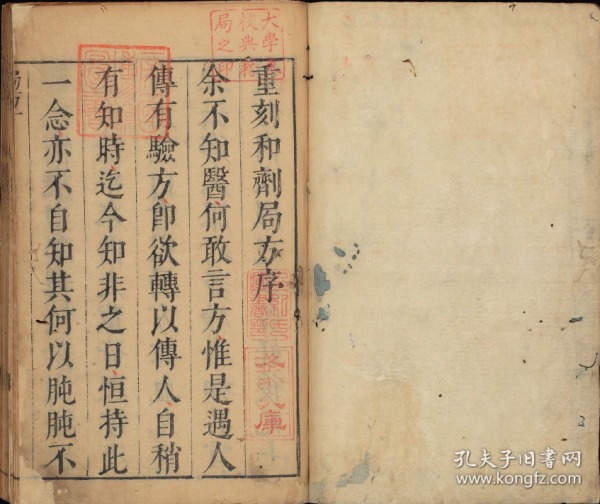 重刻和劑局方序
余不知醫何敢言方惟是遇人
傳有驗方卽欲轉以傳人自稍
有知時迄今知非之日恒持此
一念亦不自知其何以肫肫不
孔夫子旧书网
www.kongfz.com